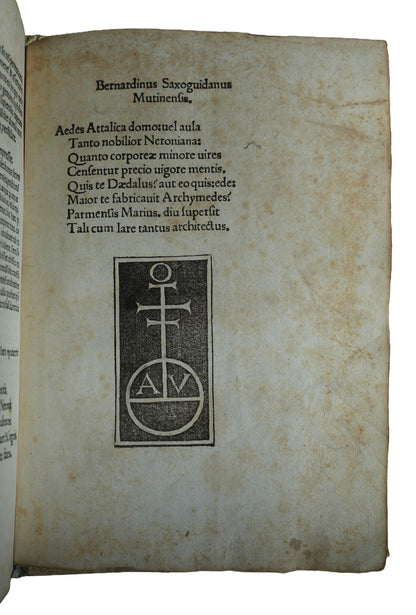 Bernardinus Saxoguidanus
Mutinensis.
Aedes Attalica domo: uel aula
Tanto nobilior Neroniana:
Quanto corporeæ minore uires
Censentur precio uigore mentis.
Quis te Dædalus? aut eo quis: ede:
Maior te fabricauit Archymedes?
Parmensis Marius. diu supersit
Tali cum lare tantus architectus.
A V